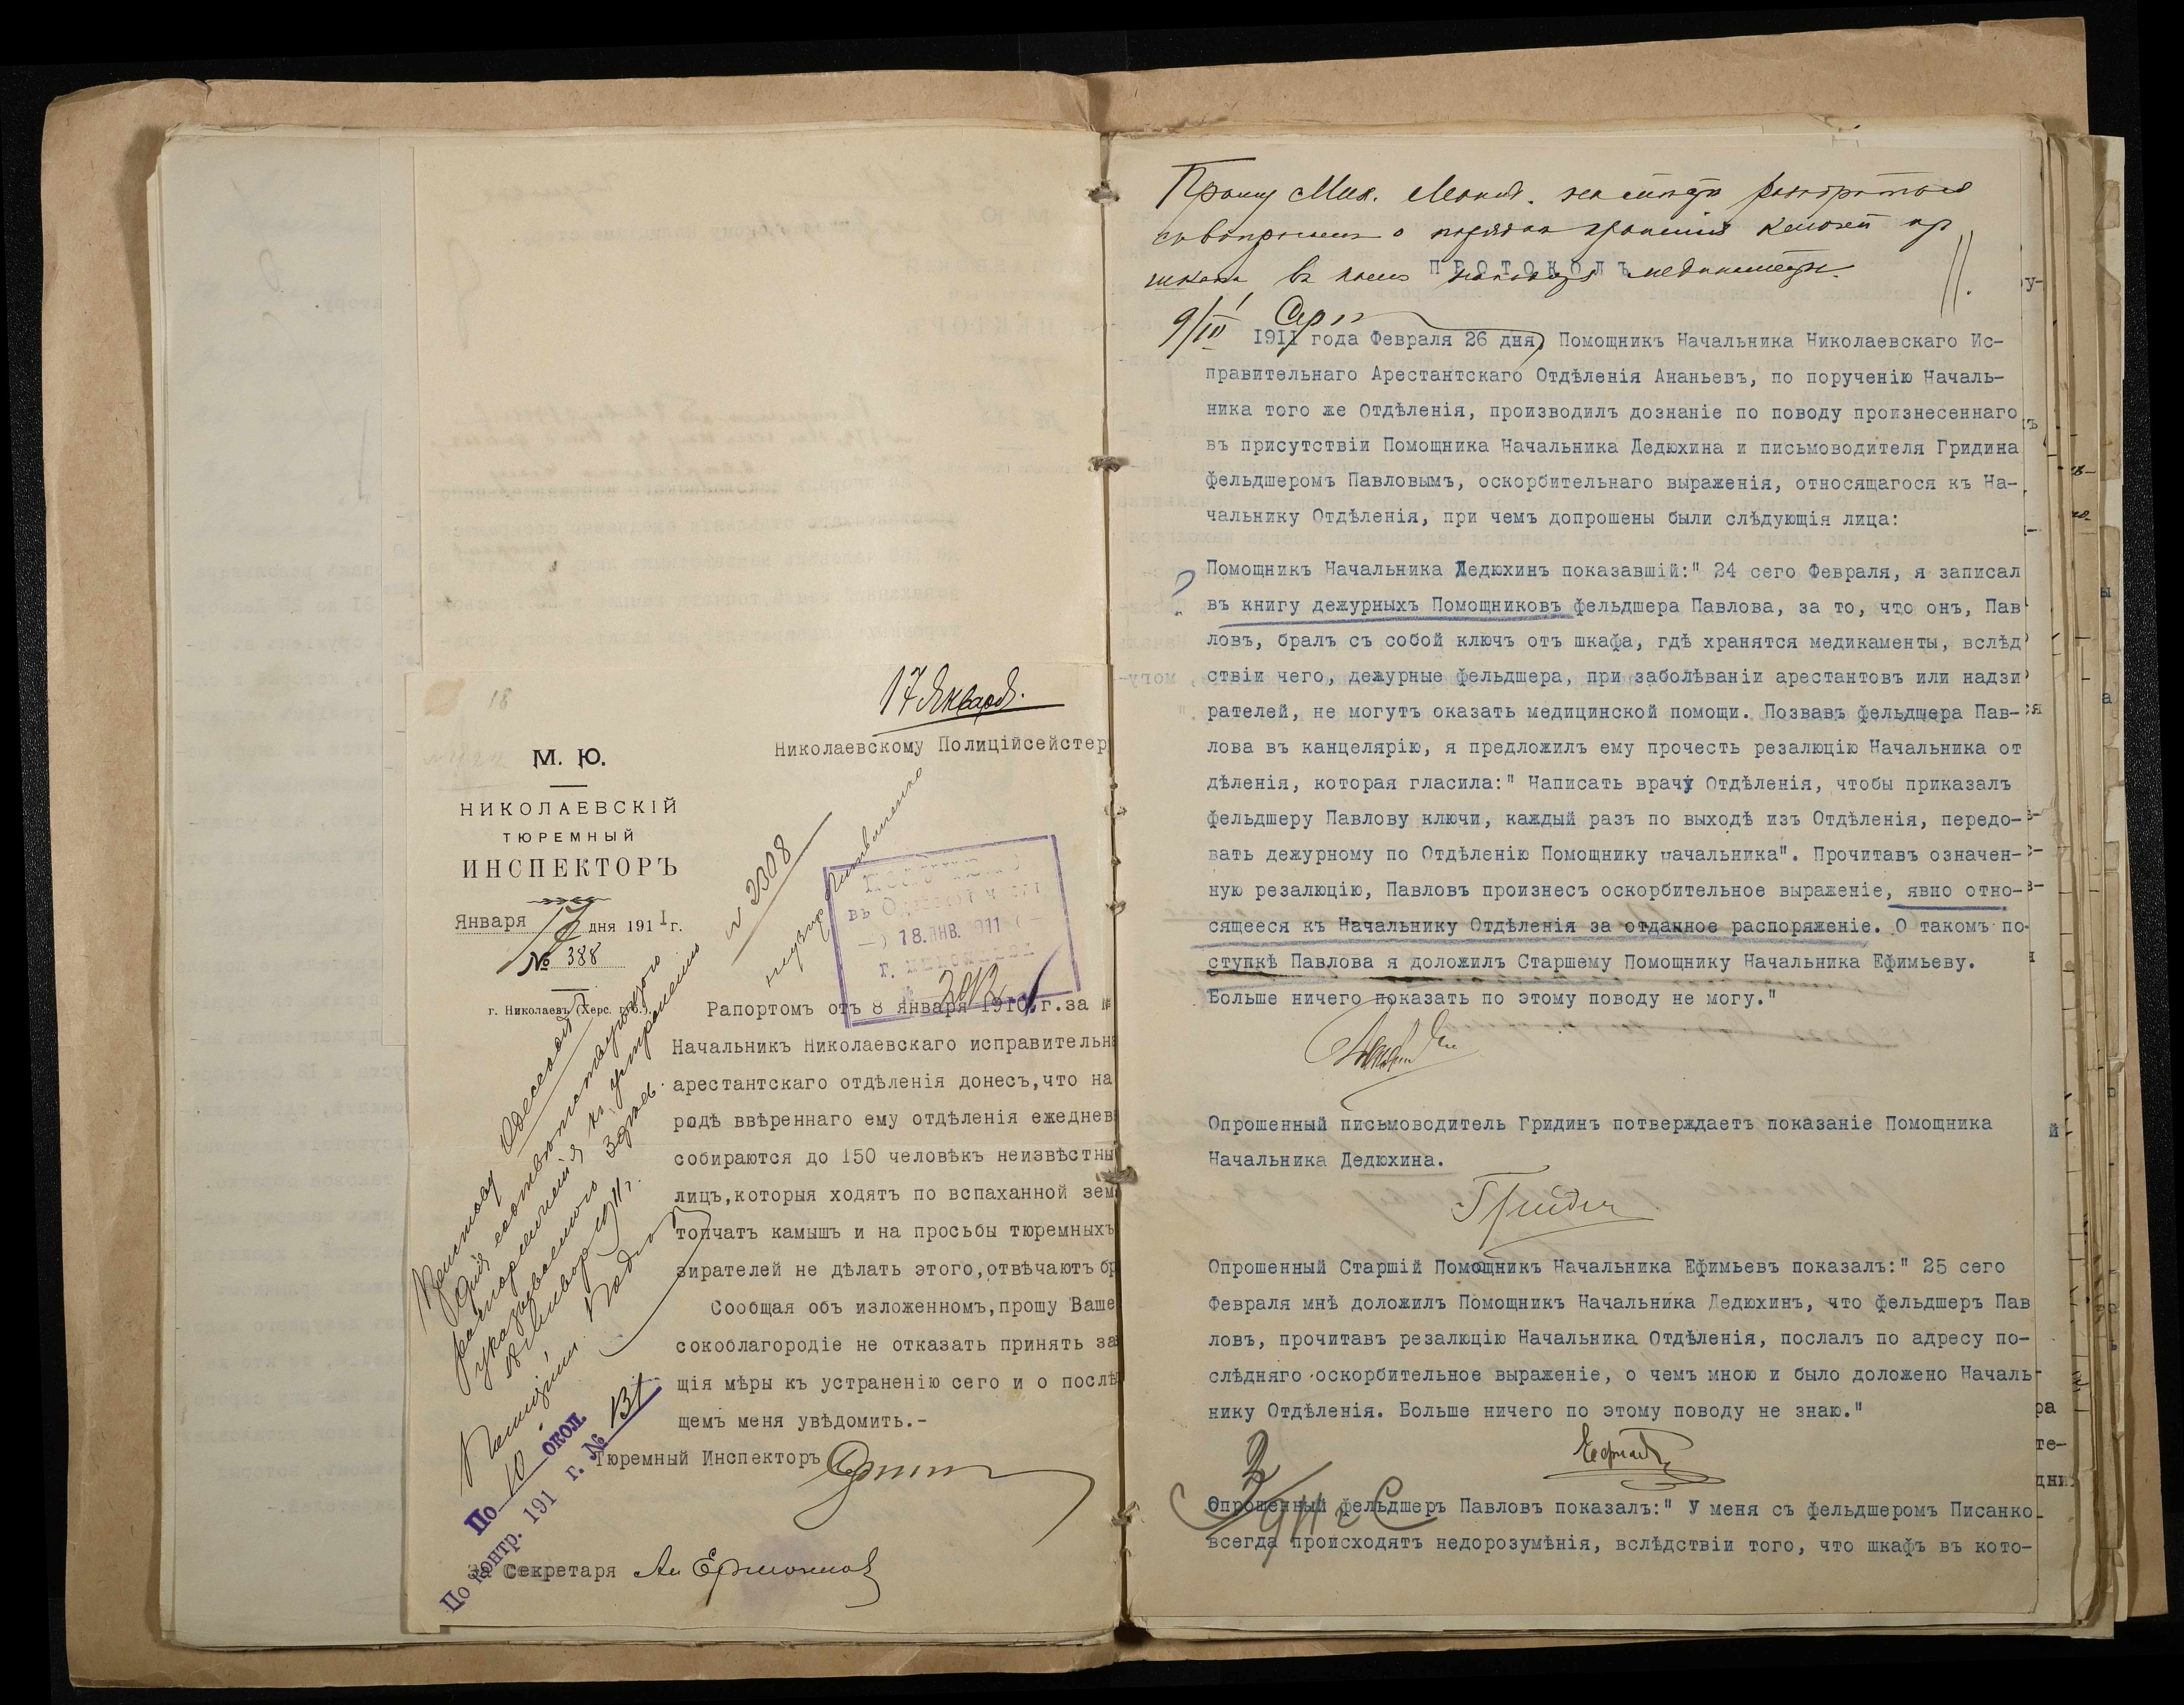 18
17 Января.
Николаевскому Полиційсейстер
М. Ю.
НИКОЛАЕВСКІЙ
ТЮРЕМНЫЙ
ИНСПЕКТОРЪ
Января 17 дня 1911 г.
№ 388
г. Николаевъ (Херс. губ.).
№ 2308
въ Одесск
18.ЯНВ.1911
г.
3012
Рапортомъ отъ 8 января 1910 г. за №
Начальникъ Николаевскаго исправительн
арестантскаго отдѣленія донесъ,что на
родѣ ввѣреннаго ему отдѣленія ежеднев
собираются до 150 человѣкъ неизвѣстны
лицъ,которыя ходятъ по вспаханной зем
топчатъ камышъ и на просьбы тюремныхъ
зирателей не дѣлать этого,отвѣчаютъ бр
Сообщая объ изложенномъ,прошу Ваше
сокоблагородіе не отказать принять за
щія мѣры къ устраненію сего и о послѣ
щемъ меня увѣдомить.-
Тюремный Инспекторъ
За Секретаря Ан Ермолаев
Приставу Одесской
для соотвѣтствующаго
распоряженія къ устраненію
указываемаго
18 Января 1911 г.
По 10 окол.
По контр. 191 г. № 131
Прошу Мих.
о порядкѣ храненія ключей
медикаменты.
9/III
ПРОТОКОЛЪ
1911 года Февраля 26 дня, Помощникъ Начальника Николаевскаго Ис-
правительнаго Арестантскаго Отдѣленія Ананьевъ, по порученію Началь-
ника того же Отдѣленія, производилъ дознаніе по поводу произнесеннаго
въ присутствіи Помощника Начальника Дедюхина и письмоводителя Гридина
фельдшеромъ Павловымъ, оскорбительнаго выраженія, относящагося къ На-
чальнику Отдѣленія, при чемъ допрошены были слѣдующія лица:
Помощникъ Начальника Дедюхинъ показавшій:" 24 сего Февраля, я записал
въ книгу дежурныхъ Помощниковъ фельдшера Павлова, за то, что онъ, Пав
ловъ, бралъ съ собой ключъ отъ шкафа, гдѣ хранятся медикаменты, вслѣд
ствіи чего, дежурные фельдшера, при заболѣваніи арестантовъ или надзи
рателей, не могутъ оказать медицинской помощи. Позвавъ фельдшера Пав-
лова въ канцелярію, я предложилъ ему прочесть резалюцію Начальника от
дѣленія, которая гласила:" Написать врачу Отдѣленія, чтобы приказалъ
фельдшеру Павлову ключи, каждый разъ по выходѣ изъ Отдѣленія, передо-
вать дежурному по Отдѣленію Помощнику начальника". Прочитавъ означен-
ную резалюцію, Павловъ произнесъ оскорбительное выраженіе, явно отно-
сящееся къ Начальнику Отдѣленія за отданное распоряженіе. О такомъ по-
ступкѣ Павлова я доложилъ Старшему Помощнику Начальника Ефимьеву.
Больше ничего показать по этому поводу не могу."
Опрошенный письмоводитель Гридинъ потверждаетъ показаніе Помощника
Начальника Дедюхина.
Гридин
Опрошенный Старшій Помощникъ Начальника Ефимьевъ показалъ:" 25 сего
Февраля мнѣ доложилъ Помощникъ Начальника Дедюхинъ, что фельдшеръ Пав
ловъ, прочитавъ резалюцію Начальника Отдѣленія, послалъ по адресу по-
слѣдняго оскорбительное выраженіе, о чемъ мною и было доложено Началь-
нику Отдѣленія. Больше ничего по этому поводу не знаю."
Опрошенный фельдшеръ Павловъ показалъ:" У меня съ фельдшеромъ Писанко-
всегда происходятъ недорозумѣнія, вслѣдствіи того, что шкафъ въ кото-